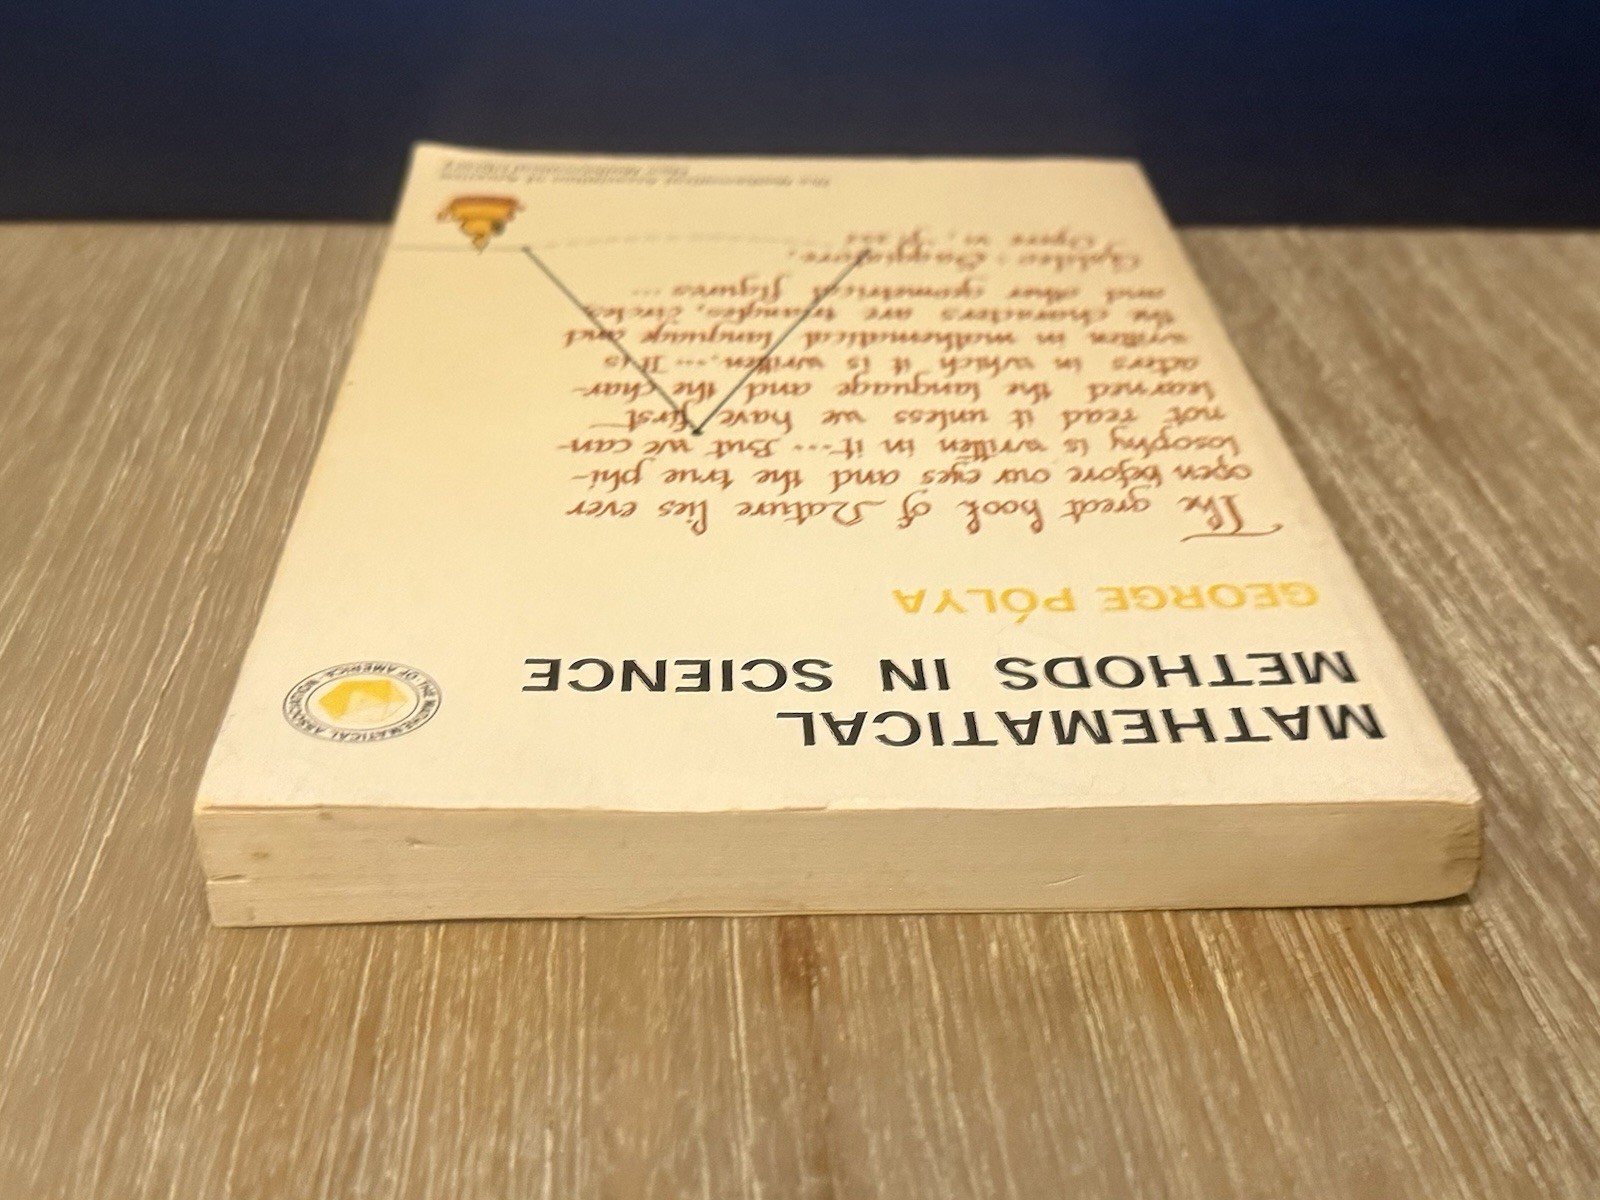 MATHEMATICAL
METHODS IN SCIENCE
THE MATHEMATICAL ASSOCIATION OF AMERICA
GEORGE PÓLYA
The great book of Nature lies ever
open before our eyes and the true phi-
losophy is written in it... But we can-
not read it unless we have first
learned the language and the char-
acters in which it is written.... It is
written in mathematical language and
the characters are triangles, circles,
and other geometrical figures ...
Galileo: Saggiatore,
Opere VI,
The Mathematical Association of America
New Mathematical Library